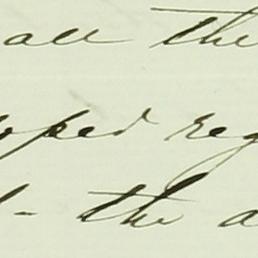 all the
oped reg
- the a